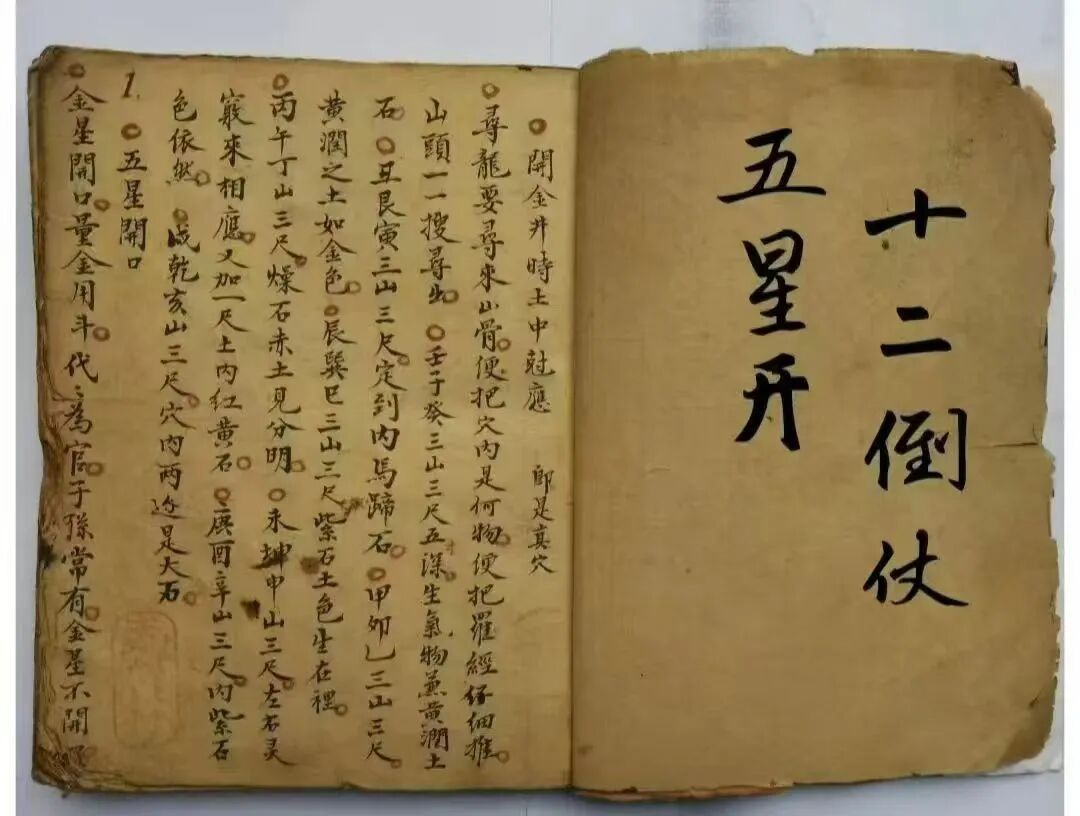 十二倒仗
五星开
開金井時土中尅應　即是真穴
尋龍要尋來山骨便把穴内是何物便把羅經仔細推
山頭一一搜尋出壬子癸三山三尺五深生氣物兼黄潤土
石丑艮寅三山三尺定到内馬蹄石甲卯乙三山三尺
黄潤之土如金色辰巽巳三山三尺紫石土色生在裡
丙午丁山三尺燥石赤土見分明未坤申山三尺左右灵
竅來相應又加一尺土内红黄石庚酉辛山三尺内紫石
色依然戌乾亥山三尺穴内两边是大石
1.五星開口
金星開口量金用斗代〻為官子孫常有金星不開